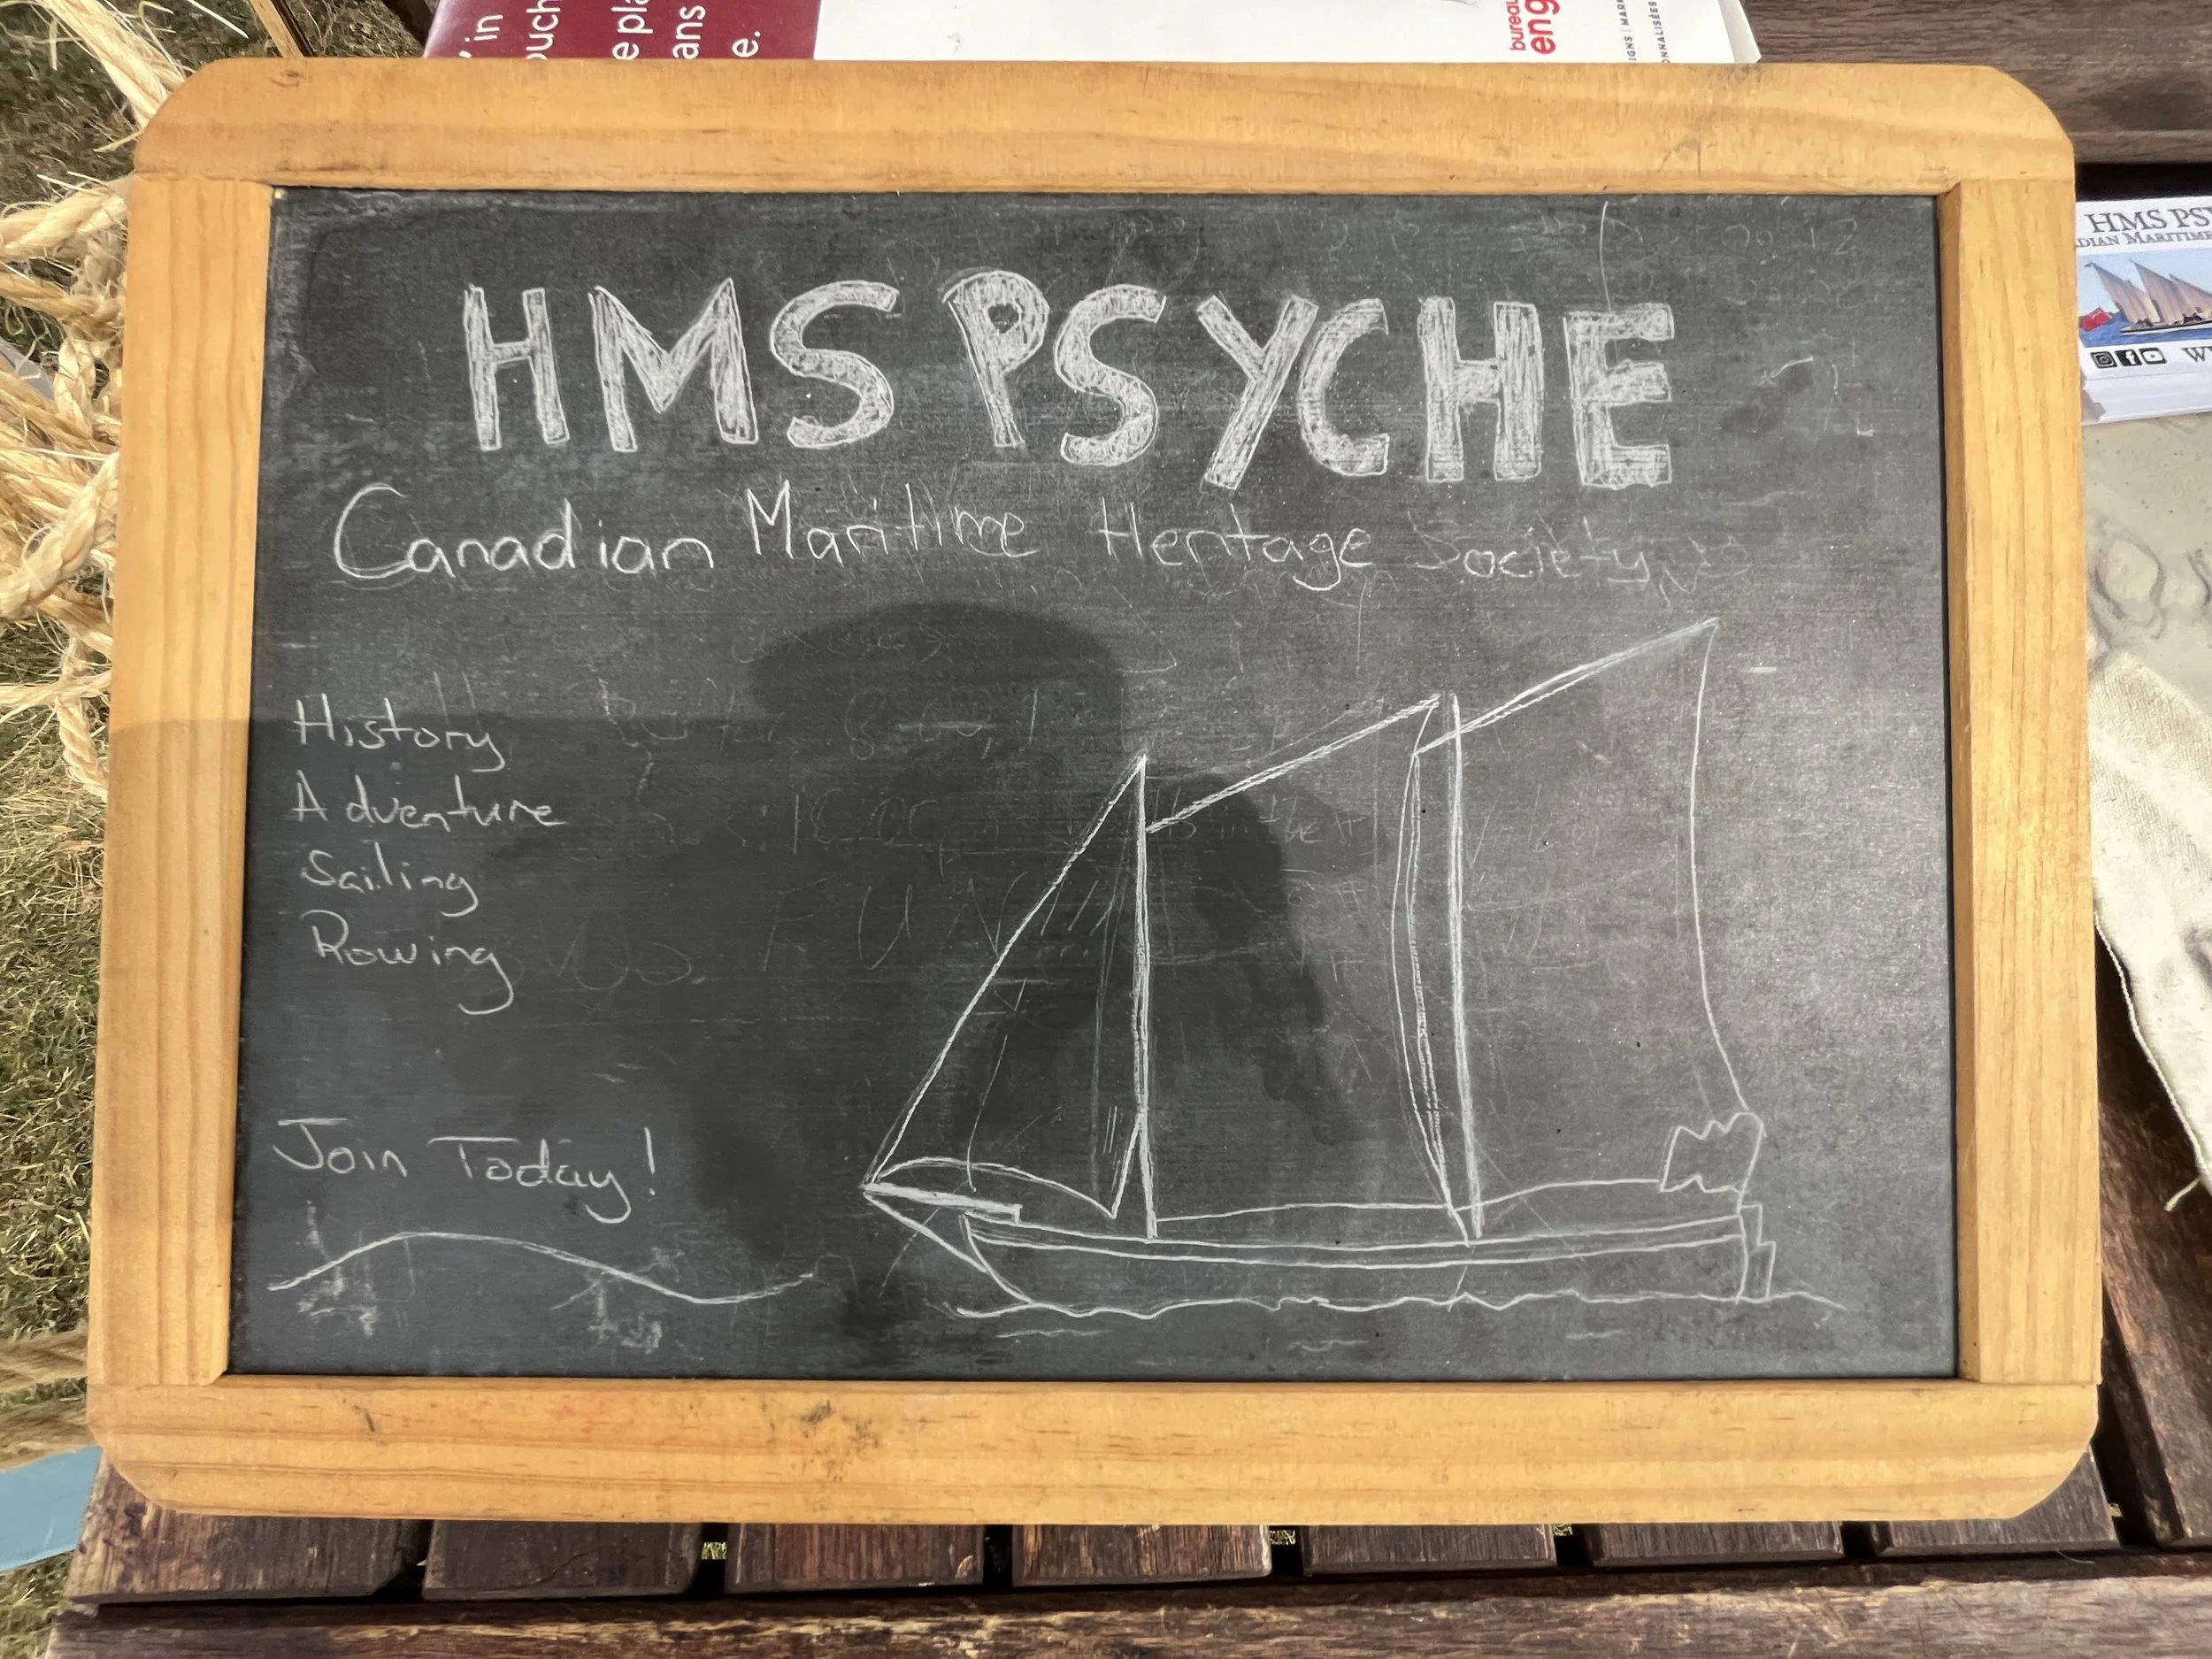 HMS PSYCHE
Canadian Maritime Heritage Society
History
Adventure
Sailing
Rowing
Join Today!
FUN
in
e.
bureau
eng
HMS PSY
DIAN MARITIME